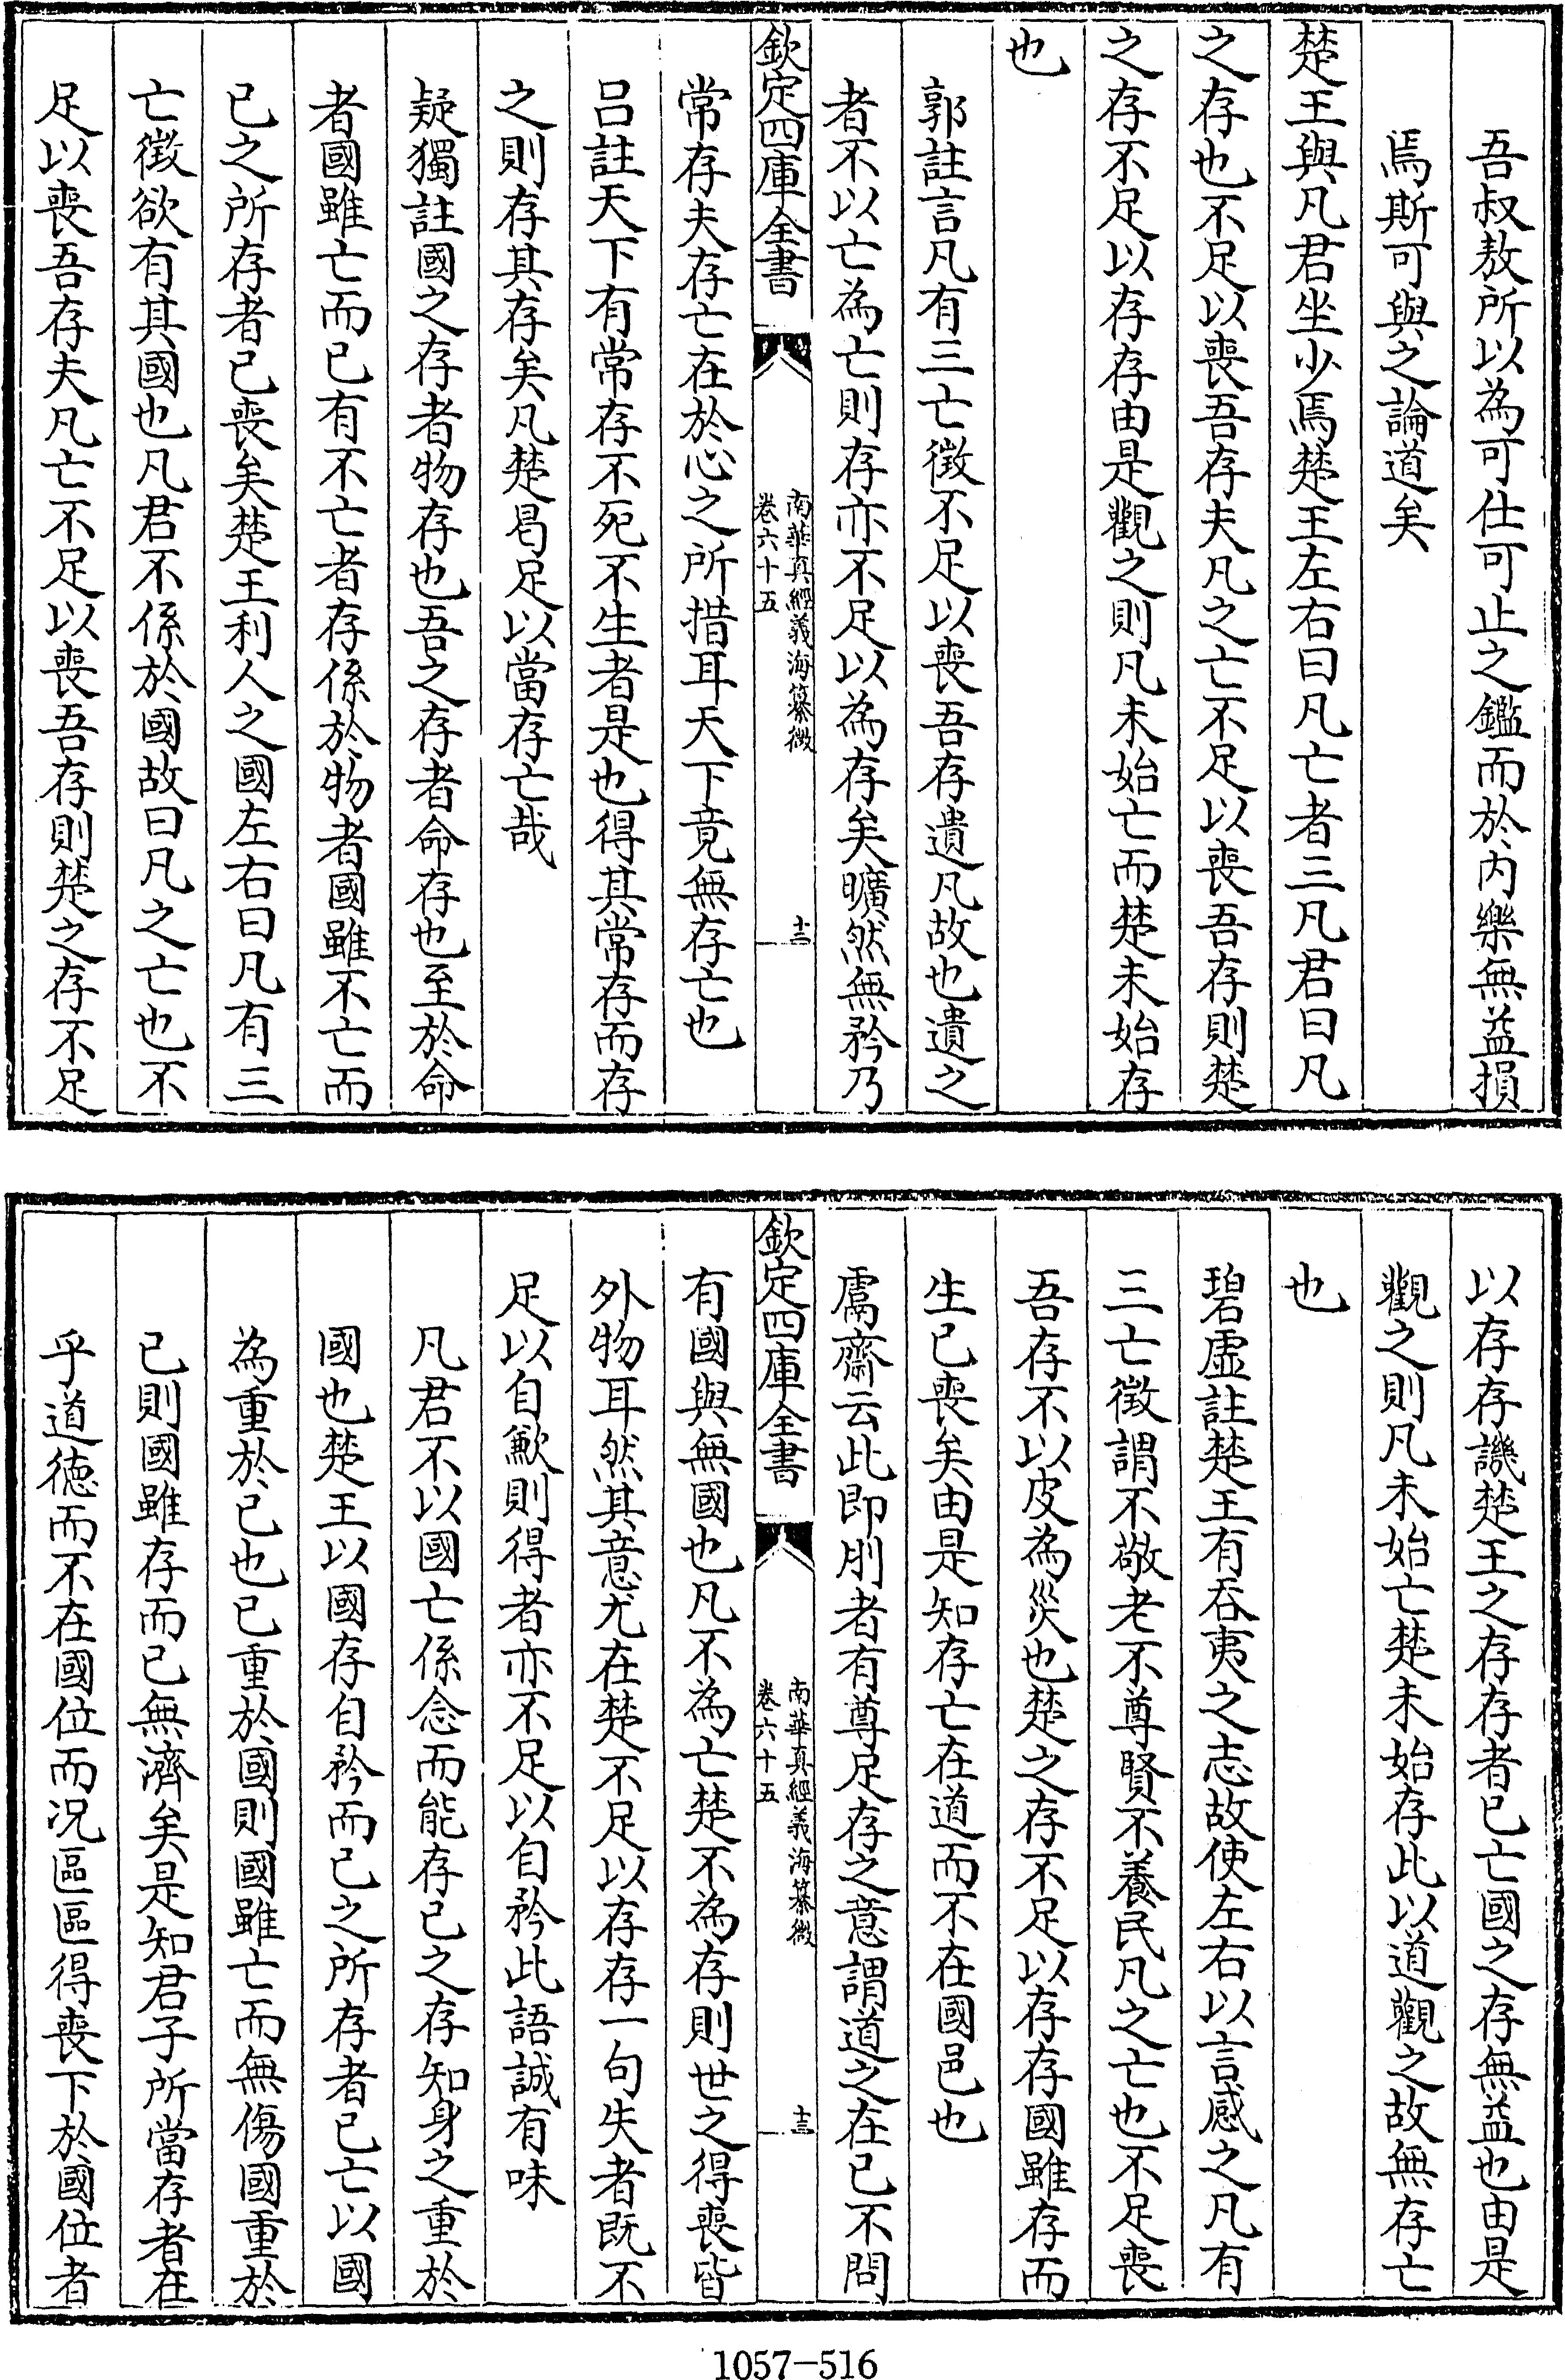 吾叔敖所以為可仕可止之鑑而於内樂無益損
焉斯可與之論道矣
楚王與凡君坐少焉楚王左右曰凡亡者三凡君曰凡
之存也不足以喪吾存夫凡之亡不足以喪吾存則楚
之存不足以存存由是觀之則凡未始亡而楚未始存
也
郭註言凡有三亡徵不足以喪吾存遺凡故也遺之
者不以亡為亡則存亦不足以為存矣曠然無矜乃
欽定四庫全書
南華真經義海纂微
卷六十五
十二
常存夫存亡在於心之所措耳天下竟無存亡也
吕註天下有常存不死不生者是也得其常存而存
之則存其存矣凡楚曷足以當存亡哉
疑獨註國之存者物存也吾之存者命存也至於命
者國雖亡而已有不亡者存係於物者國雖不亡而
已之所存者已喪矣楚王利人之國左右曰凡有三
亡徵欲有其國也凡君不係於國故曰凡之亡也不
足以喪吾存夫凡亡不足以喪吾存則楚之存不足
以存存譏楚王之存存者已亡國之存無益也由是
觀之則凡未始亡楚未始存此以道觀之故無存亡
也
碧虛註楚王有吞夷之志故使左右以言感之凡有
三亡徵謂不敬老不尊賢不養民凡之亡也不足喪
吾存不以皮為災也楚之存不足以存存國雖存而
生已喪矣由是知存亡在道而不在國邑也
鬳齋云此即刖者有尊足存之意謂道之在已不問
欽定四庫全書
南華真經義海纂微
卷六十五
十三
有國與無國也凡不為亡楚不為存則世之得喪皆
外物耳然其意尤在楚不足以存存一句失者既不
足以自歉則得者亦不足以自矜此語誠有味
凡君不以國亡係念而能存已之存知身之重於
國也楚王以國存自矜而已之所存者已亡以國
為重於已也已重於國則國雖亡而無傷國重於
已則國雖存而已無濟矣是知君子所當存者在
乎道徳而不在國位而况區區得喪下於國位者
1057-516